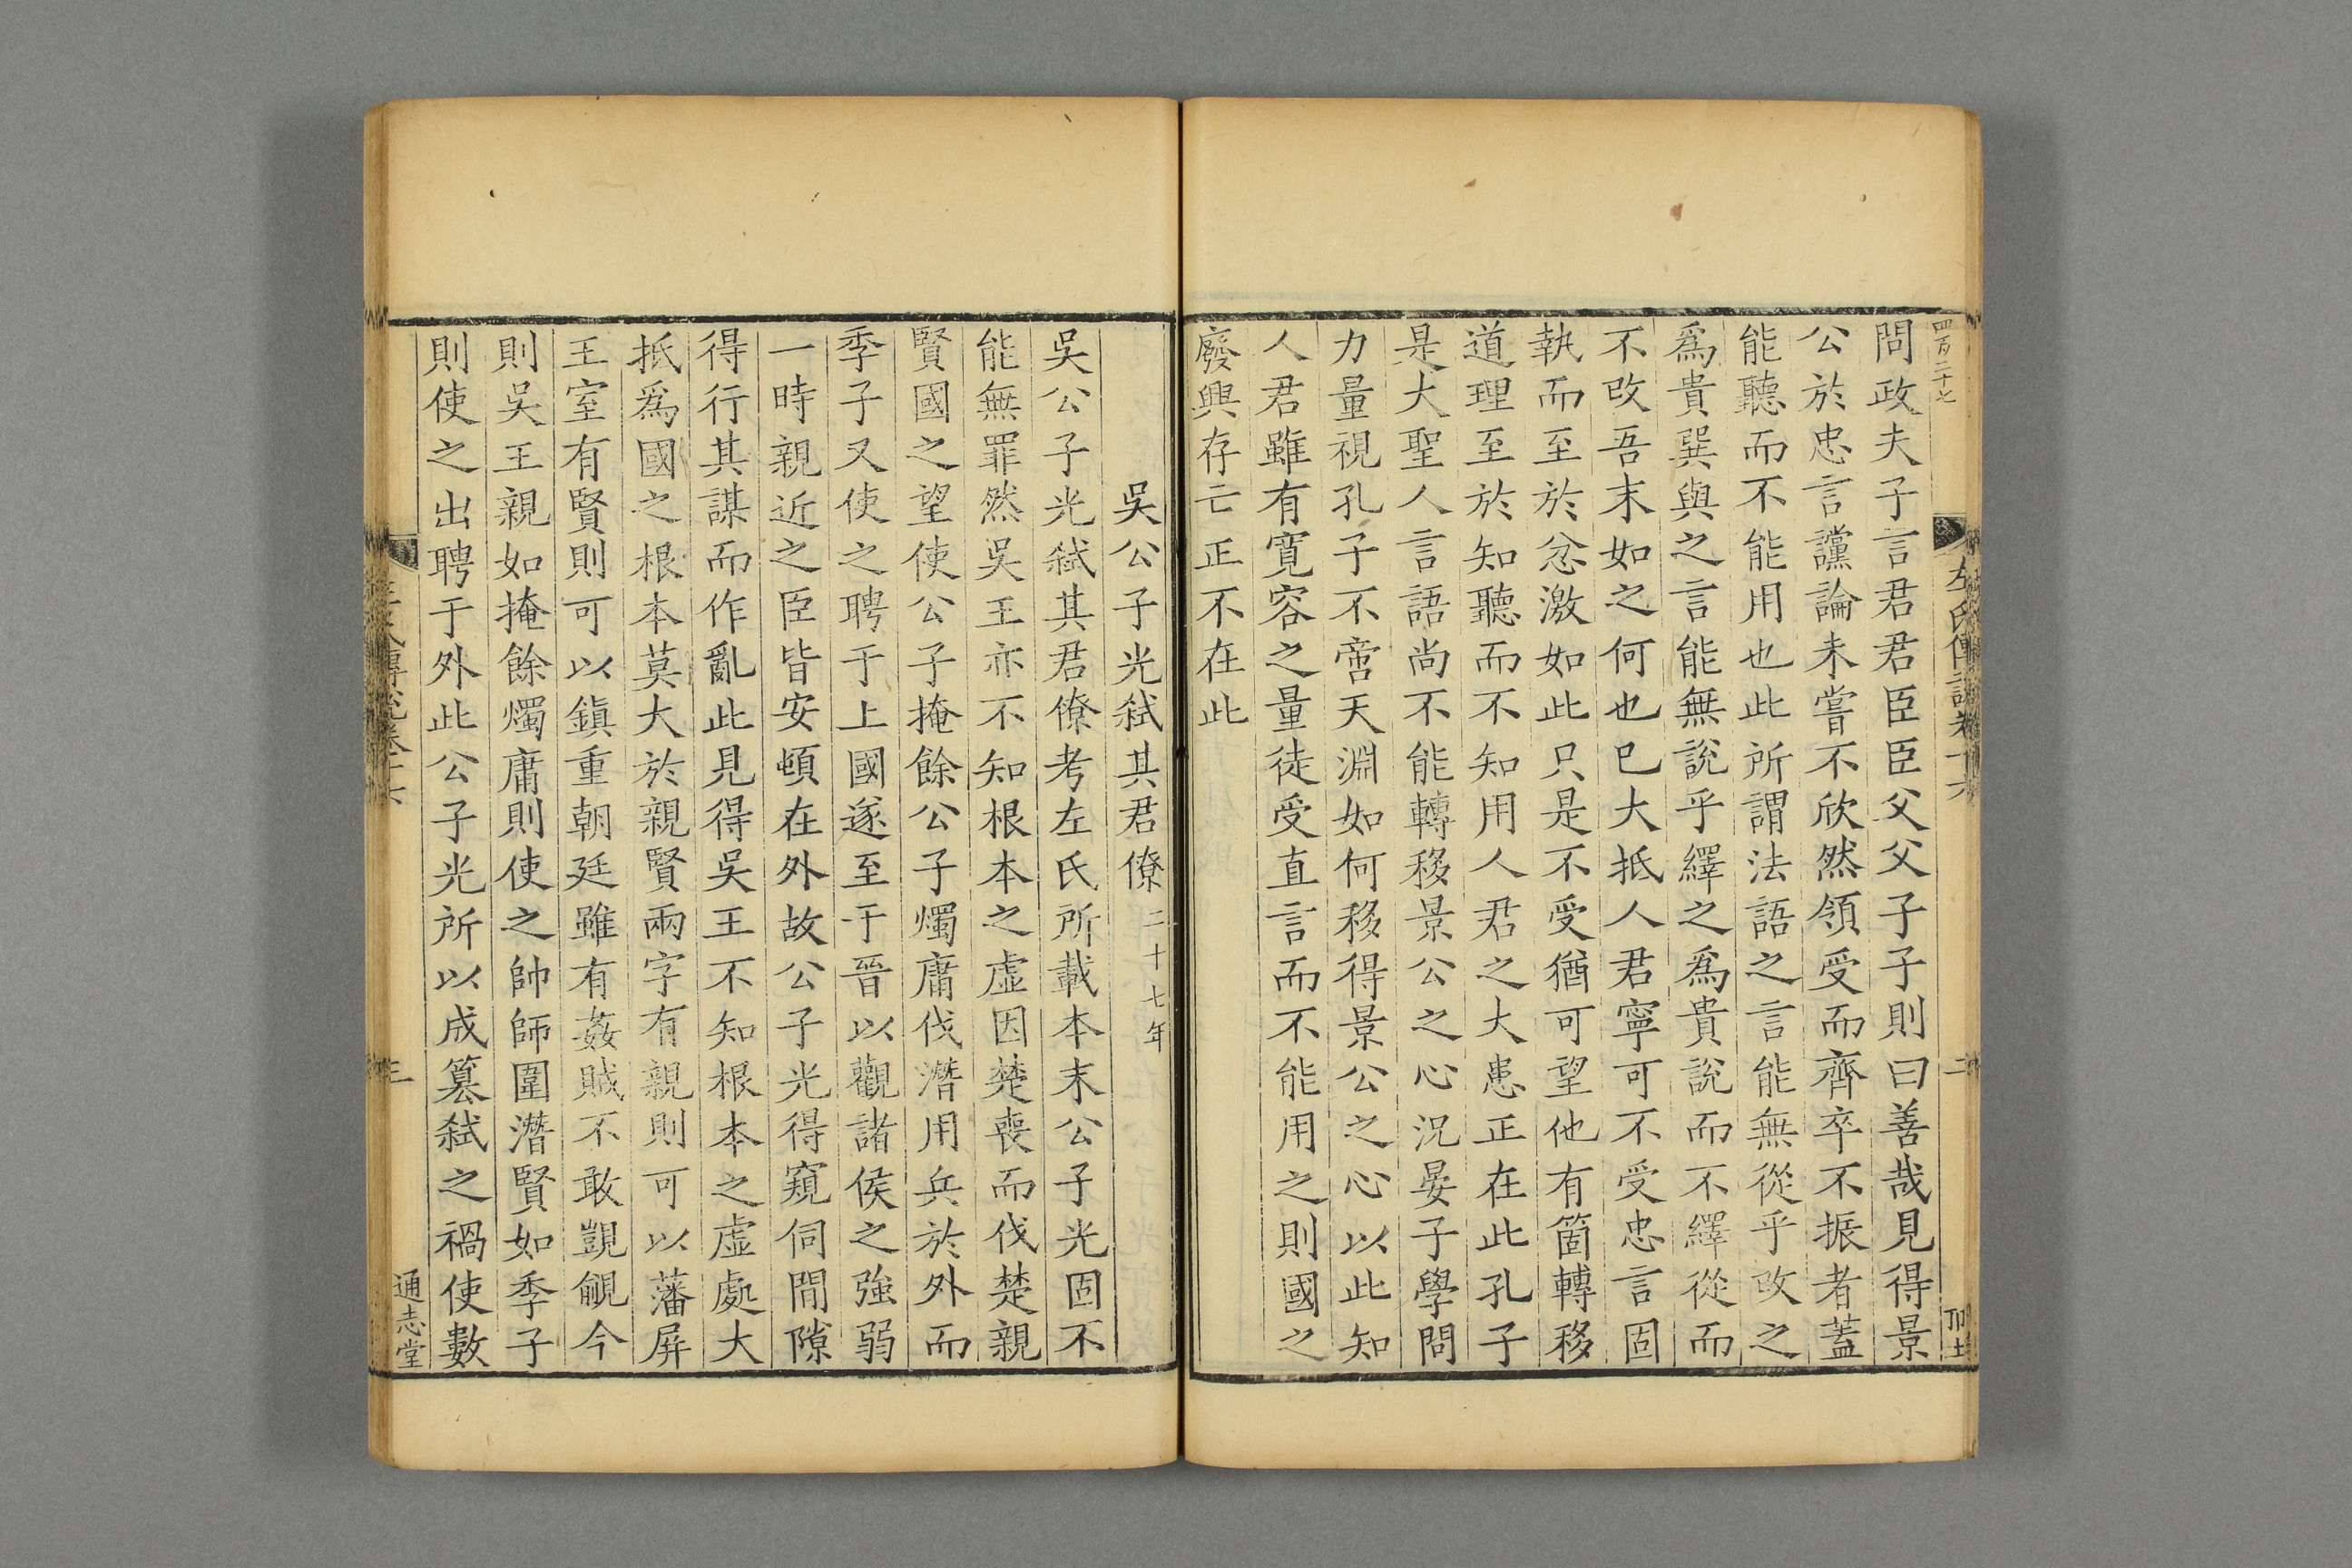 四百二十七
左氏傳說卷十六
二
問政夫子言君君臣臣父父子子則曰善哉見得景
公於忠言讜論未嘗不欣然領受而齊卒不振者蓋
能聽而不能用也此所謂法語之言能無從乎改之
爲貴巽與之言能無說乎繹之爲貴說而不繹從而
不改吾末如之何也已大抵人君寧可不受忠言固
執而至於忿激如此只是不受猶可望他有箇轉移
道理至於知聽而不知用人君之大患正在此孔子
是大聖人言語尚不能轉移景公之心況晏子學問
力量視孔子不啻天淵如何移得景公之心以此知
人君雖有寬容之量徒受直言而不能用之則國之
廢興存亡正不在此
吳公子光弑其君僚二十七年
吳公子光弑其君僚考左氏所載本末公子光固不
能無罪然吳王亦不知根本之虛因楚喪而伐楚親
賢國之望使公子掩餘公子燭庸伐潛用兵於外而
季子又使之聘于上國遂至于晉以觀諸侯之強弱
一時親近之臣皆安頓在外故公子光得窺伺間隙
得行其謀而作亂此見得吳王不知根本之虛處大
抵爲國之根本莫大於親賢兩字有親則可以藩屏
王室有賢則可以鎭重朝廷雖有姦賊不敢覬覦今
則吳王親如掩餘燭庸則使之帥師圍潛賢如季子
則使之出聘于外此公子光所以成簒弑之禍使數
三
通志堂